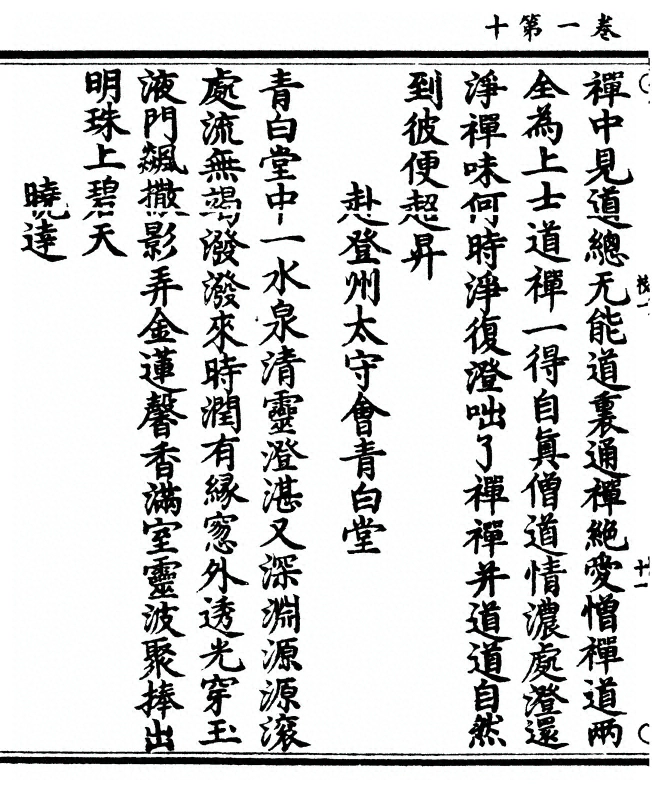 卷一第十
禪中見道總无能道裏通禪絶愛憎禪道兩
全為上士道禪一得自真僧道情濃處澄還
淨禪味何時淨復澄咄了禪禪并道道自然
到彼便超昇
赴登州太守會青白堂
青白堂中一水泉清靈澄湛又深淵源源滚
處流無竭潑潑來時潤有緣窓外透光穿玉
液門飆撒影弄金蓮馨香滿室靈波聚捧出
明珠上碧天
曉達
十一